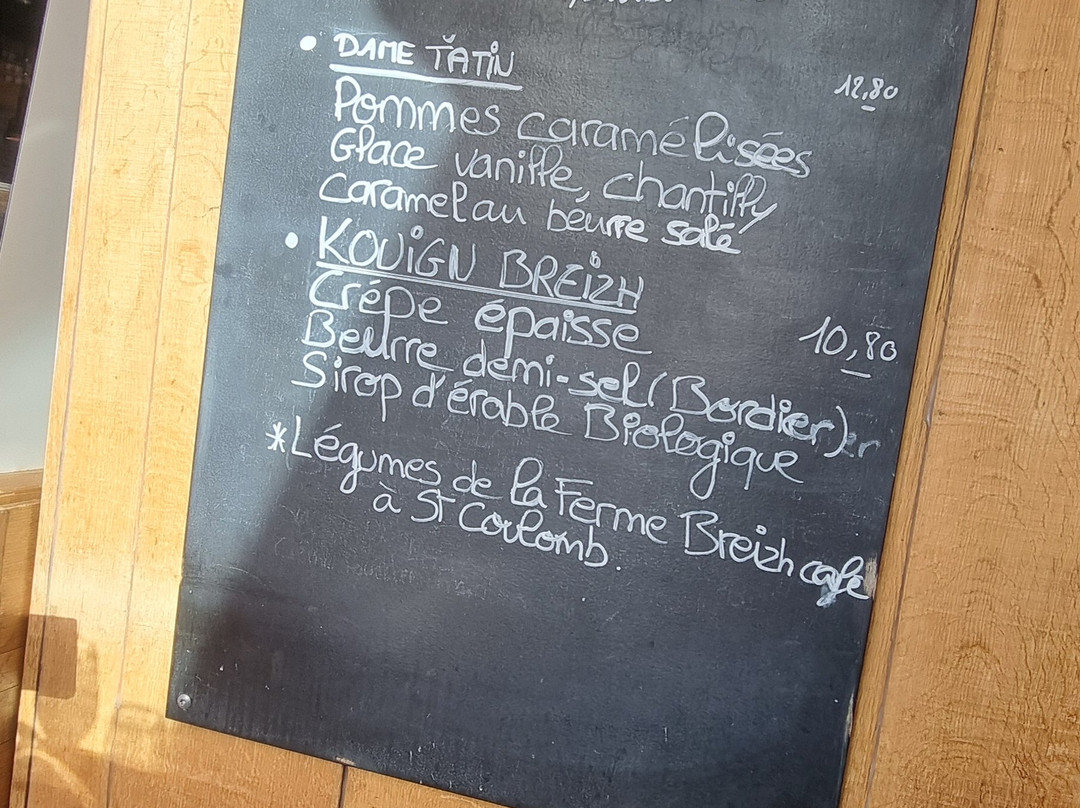 • DAME TATIN 12,80
Pommes caramélisées
Glace vanille, chantilly
Caramel au beurre salé
• KOUIGN BREIZH
Crêpe épaisse 10,80
Beurre demi-sel (Bordier)
Sirop d'érable Biologique
*Légumes de la Ferme Breizh café
à St Coulomb.